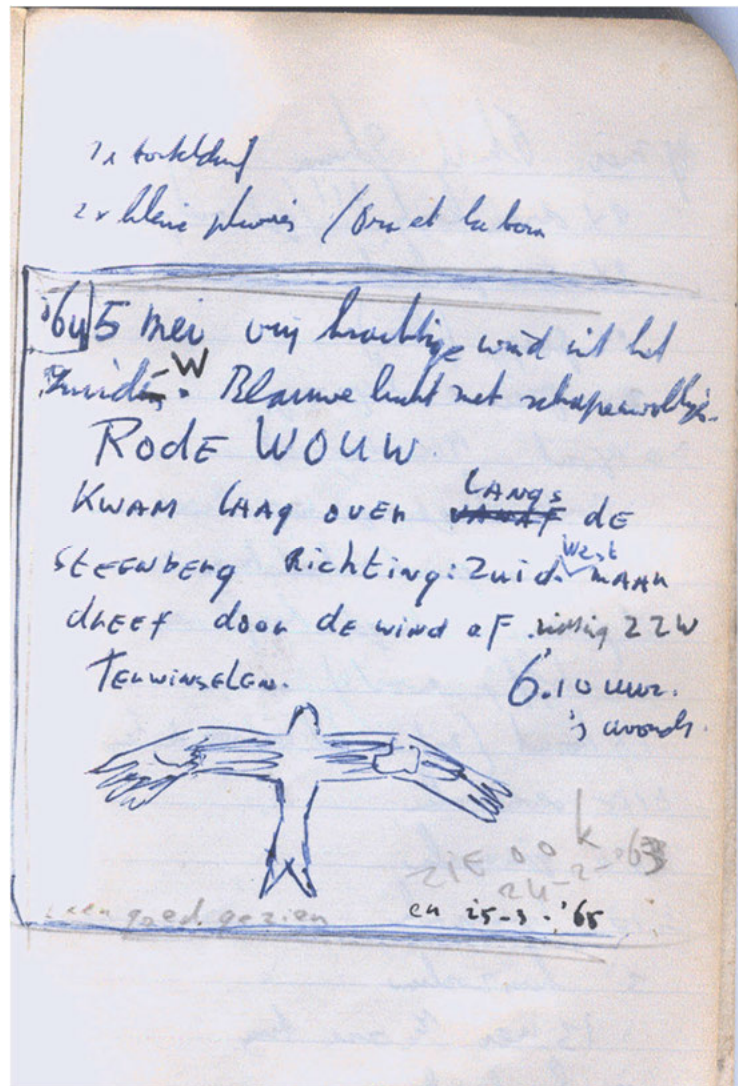 1x tortelduif
2x kleine plevier / Ora et labora
'64 5 mei vrij krachtige wind uit het
Zuiden W. Blauwe lucht met schapewolkjes.
RODE WOUW.
KWAM LAAG OVER VANAF LANGS DE
STEENBERG RICHTING: ZUID. West MAAR
DREEF DOOR DE WIND AF richting ZZW
TERWINSELEN. 6.10 uur.
's avonds.
ZIE OOK
24-2-'63
en 25-3-'65
goed gezien